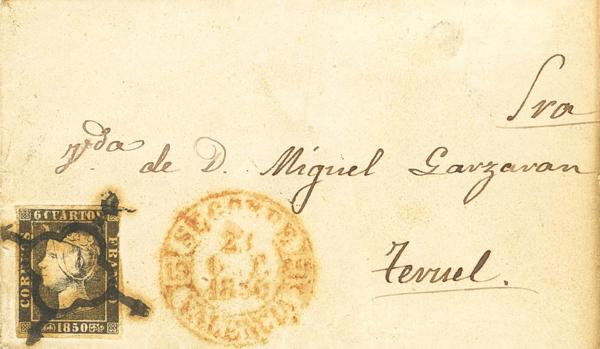 Sra
V.da de D. Miguel Garzaran
Teruel.
6 CUARTOS
CORREOS
FRANCO
1850
SEGORBE
2
1850
VALENCIA